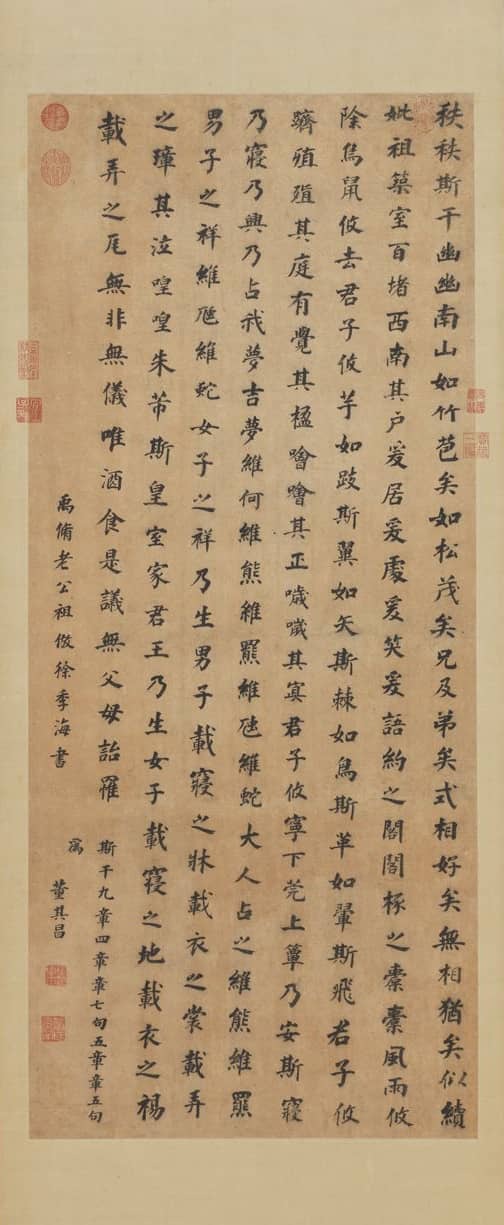 秩秩斯干幽幽南山如竹苞矣如松茂矣兄及弟矣式相好矣無相猶矣似續
妣祖築室百堵西南其户爰居爰處爰笑爰語約之閣閣椓之橐橐風雨攸
除鳥鼠攸去君子攸芋如跂斯翼如矢斯棘如鳥斯革如翬斯飛君子攸
躋殖殖其庭有覺其楹噲噲其正噦噦其冥君子攸寧下莞上簟乃安斯寢
乃寢乃興乃占我夢吉夢維何維熊維羆維虺維蛇大人占之維熊維羆
男子之祥維虺維蛇女子之祥乃生男子載寢之牀載衣之裳載弄
之璋其泣喤喤朱芾斯皇室家君王乃生女子載寢之地載衣之裼
載弄之瓦無非無儀唯酒食是議無父母詒罹
斯干九章四章章七句五章章五句
為
禹脩老公祖倣徐季海書 董其昌